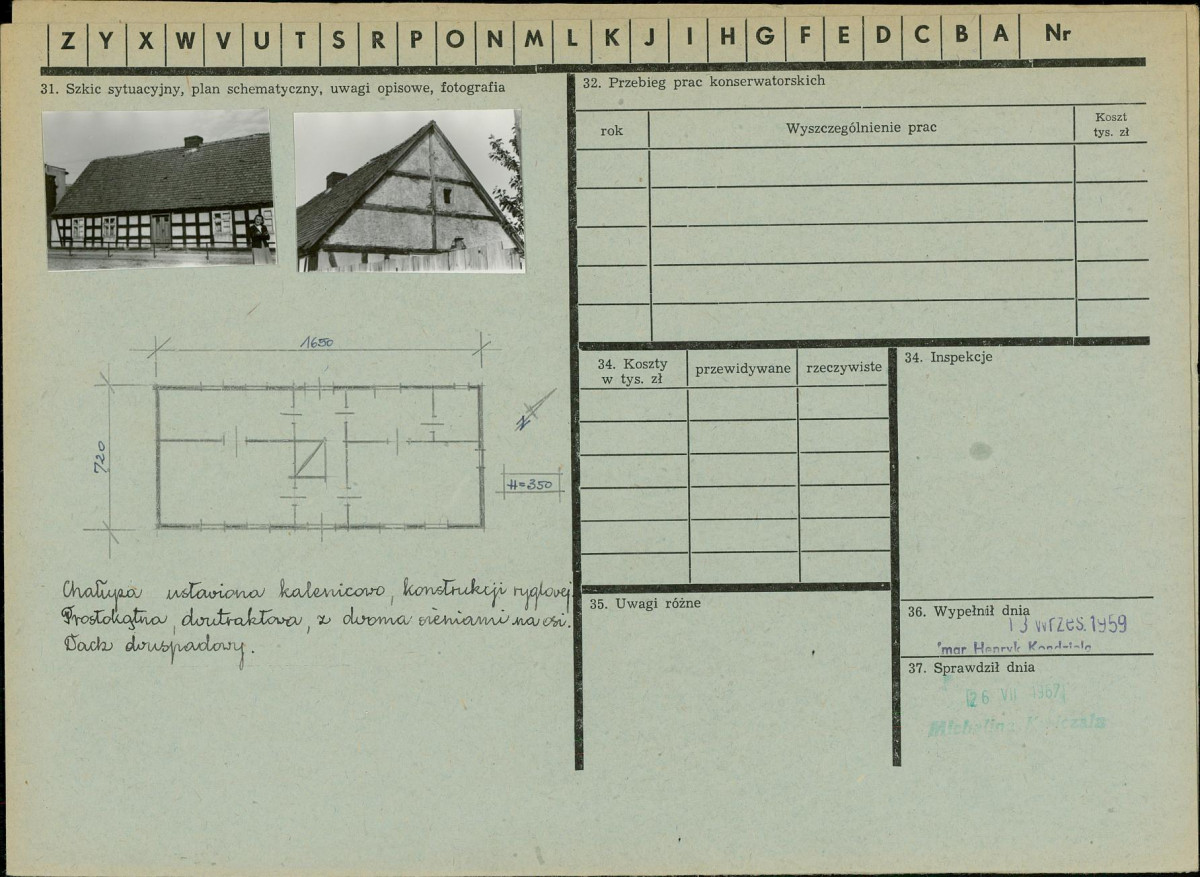 Z Y X W V U T S R P O N M L K J I H G F E D C B A Nr
31. Szkic sytuacyjny, plan schematyczny, uwagi opisowe, fotografia
1650
720
N
H=350
Chałupa ustawiona kalenicowo, konstrukcji ryglowej.
Prostokątna, dwutraktowa, z dwoma sieniami na osi.
Dach dwuspadowy.
32. Przebieg prac konserwatorskich
rok
Wyszczególnienie prac
Koszt
tys. zł
34. Koszty
w tys. zł
przewidywane
rzeczywiste
34. Inspekcje
35. Uwagi różne
36. Wypełnił dnia
13 wrzes. 1959
mgr Henryk Kondziela
37. Sprawdził dnia
26 VII 1967
Michalina